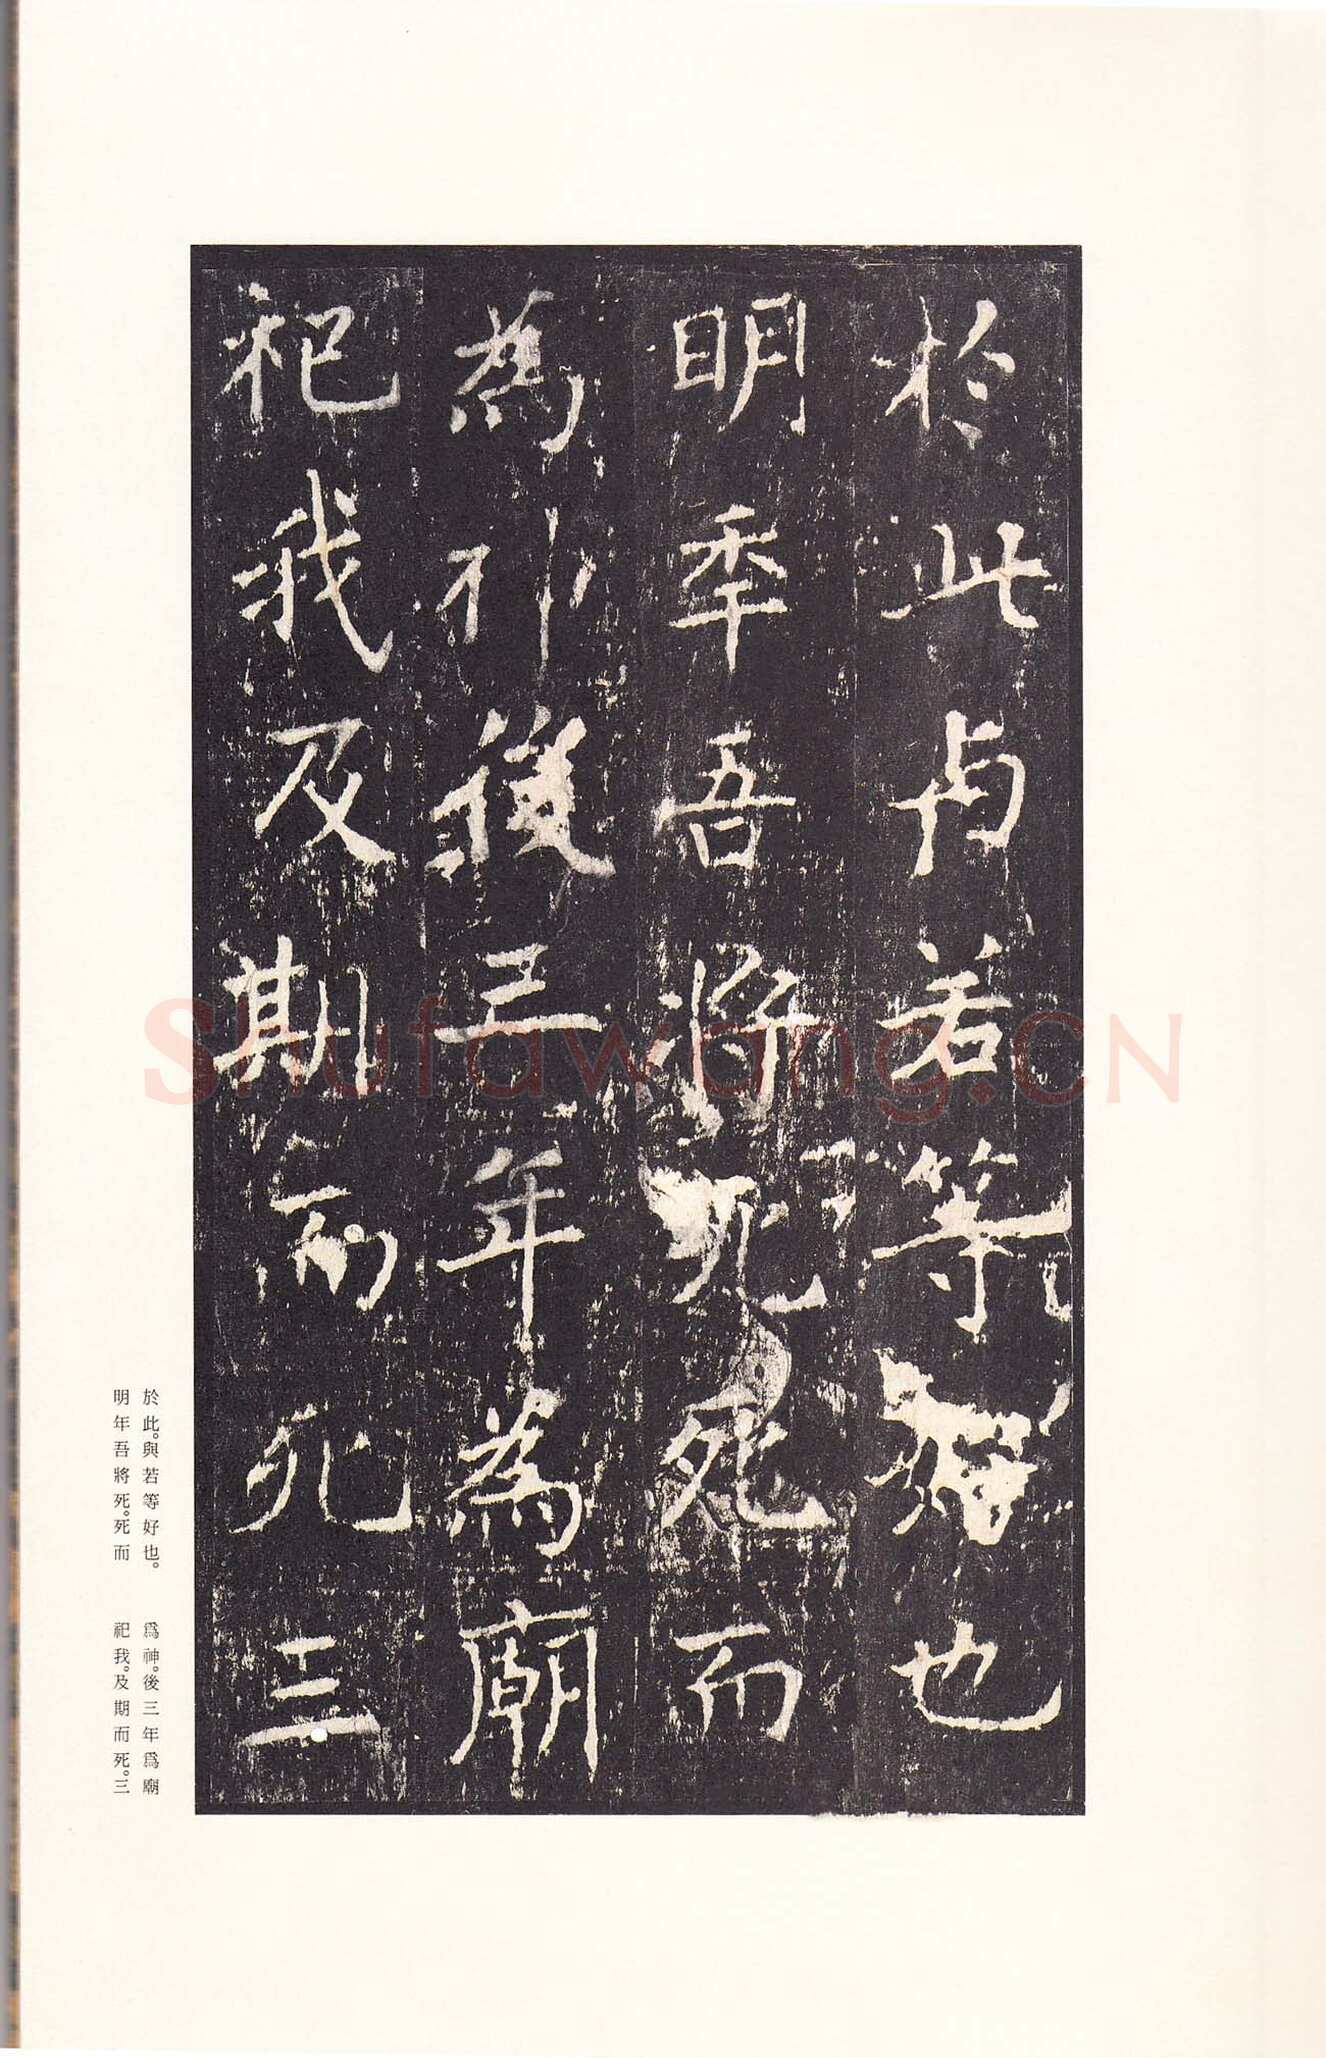 於此與若等好也
明年吾將死死而
為神後三年為廟
祀我及期而死三
於此。與若等好也。
明年吾將死。死而
爲神。後三年爲廟
祀我。及期而死。三
Shufawang.CN